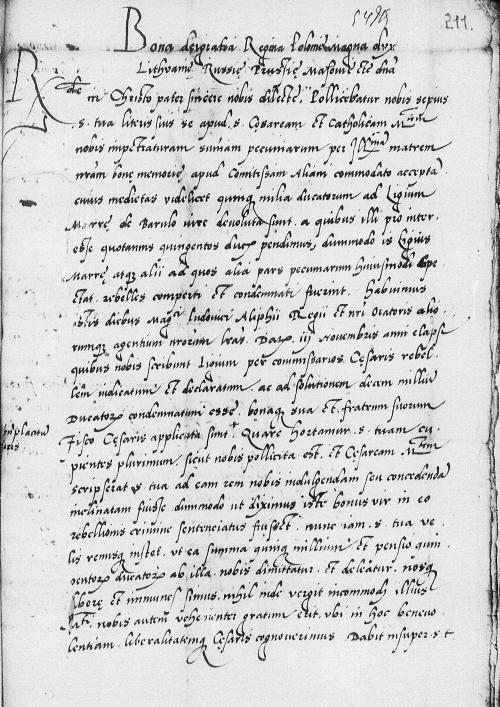 211.
Bona dei gratia Regina Polonie Magna dux
Lithuanię Russię Prussię Masouię etc dna
Rde in Christo pater sincere nobis dilecte. Pollicebatur nobis sepius
s. tua literis suis se apud s. Cesaream et Catholicam Mtem
nobis impetraturam sumam pecuniarum per Illmam matrem
nram bone memorię apud Comitissam Aliam commodato accepta
cuius medietas videlicet quinq milia ducatorum ad Ligium
Marrę de Barulo iure deuoluta sint. a quibus illi pro inter.
esse quotannis quingentos duc pendimus, dummodo is Ligius
Marrę atq alii ad quos alia pars pecuniarum huiusmodi spe
ctat. rebelles comperti et condemnati fuerint. Habuimus
istis diebus Magci ludouici Aliphii Regii et nri Oratoris alio
rumq agentium nrorum lras. Dat iii Nouembris anni elapsi
quibus nobis scribunt Ligium per commissarios Cęsaris rebel.
lem iudicatum et declaratum. ac ad solutionem decem millium
Ducator condemnatum esse. bonaq sua et fratrum suorum
Fisco Cęsaris applicata sint. Quare hortamur s. tuam cu
pientes plurimum. sicut nobis pollicita est. et Cesaream Mtem
scripserat s. tua ad eam rem nobis indulgendam seu concedendā
inclinatam fuisse. dummodo ut diximus iste bonus vir in eo
rebellionis crimine sentenciatus fuisset. nunc iam s. tua ve
lis remisq instet. ut ea summa quinq millium et pensio quin
gentor ducator ab illa nobis dimittatur. et deleatur. nosq
liberę et immunes simus. nihil inde vergit incommodi illius
Mti. nobis autem vehementer gratum erit. ubi in hoc beneuo
lentiam. liberalitatemq Cęsaris cognouerimus. Dabit insuper s. t.